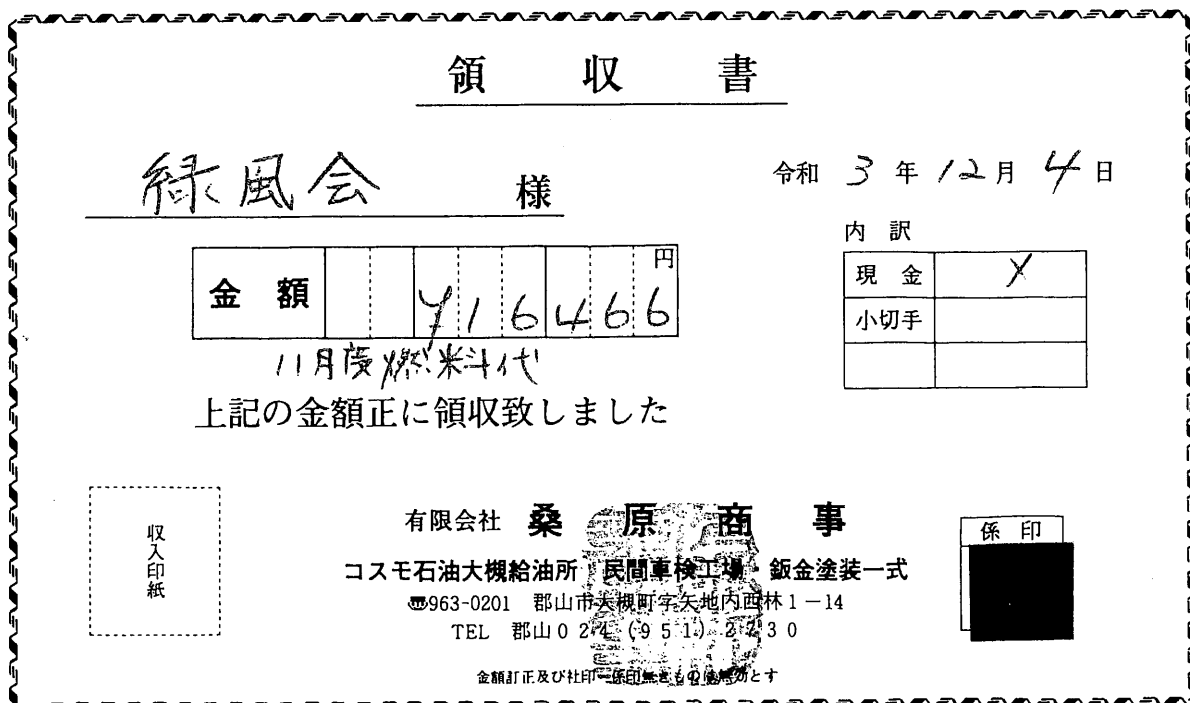 領収書
緑風会 様
令和 3年 12月 4日
金額 ¥16466円
11月度燃料代
上記の金額正に領収致しました
内訳
現金 ✓
小切手
収入印紙
有限会社 桑原商事
コスモ石油大槻給油所 民間車検工場・鈑金塗装一式
〠963-0201 郡山市大槻町字矢地内西林1-14
TEL 郡山024(951)2730
金額訂正及び社印・係印無きものは無効とす
係印